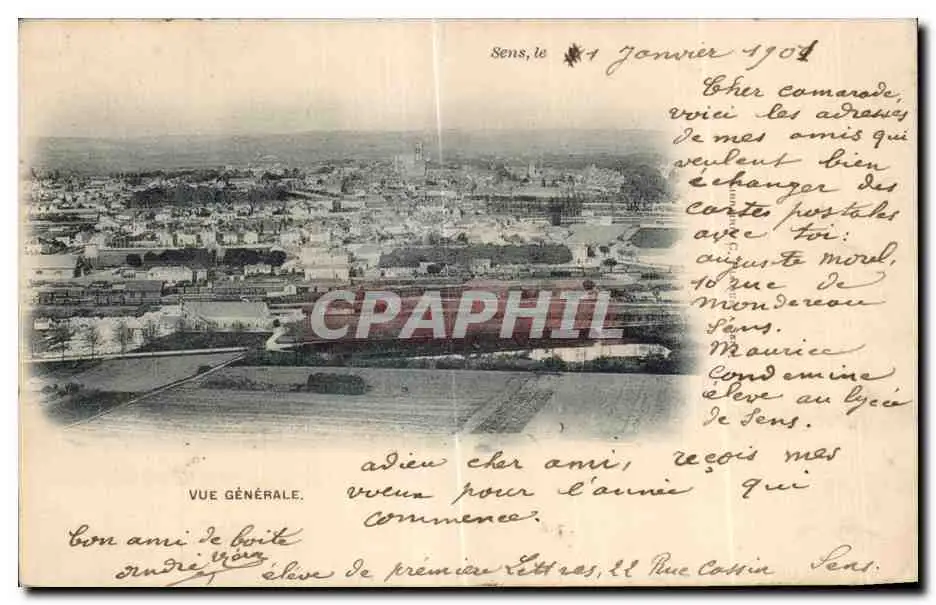 Sens, le 1 Janvier 1901
Cher camarade,
voici les adresses
de mes amis qui
veulent bien
échanger des
cartes postales
avec toi:
auguste morel,
10 rue de
mondereau
Sens.
Maurice
Condemine
élève au lycée
de Sens.
CPAPHIL
adieu cher ami, reçois mes
VUE GÉNÉRALE.
voeux pour l'année qui
commence.
bon ami de boite
andré
élève de première Lettres, 22 Rue Cassin Sens.